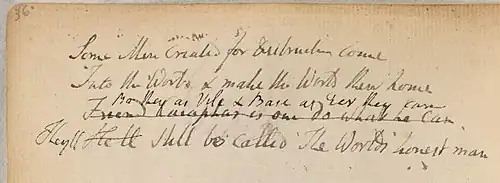 36.
Some Men Created for destruction come
Into the World & make the World their home
Be they as Vile & Base as Ever they can
Friend Caiaphas is one do what he can
Theyll He'll still be called The Worlds honest man